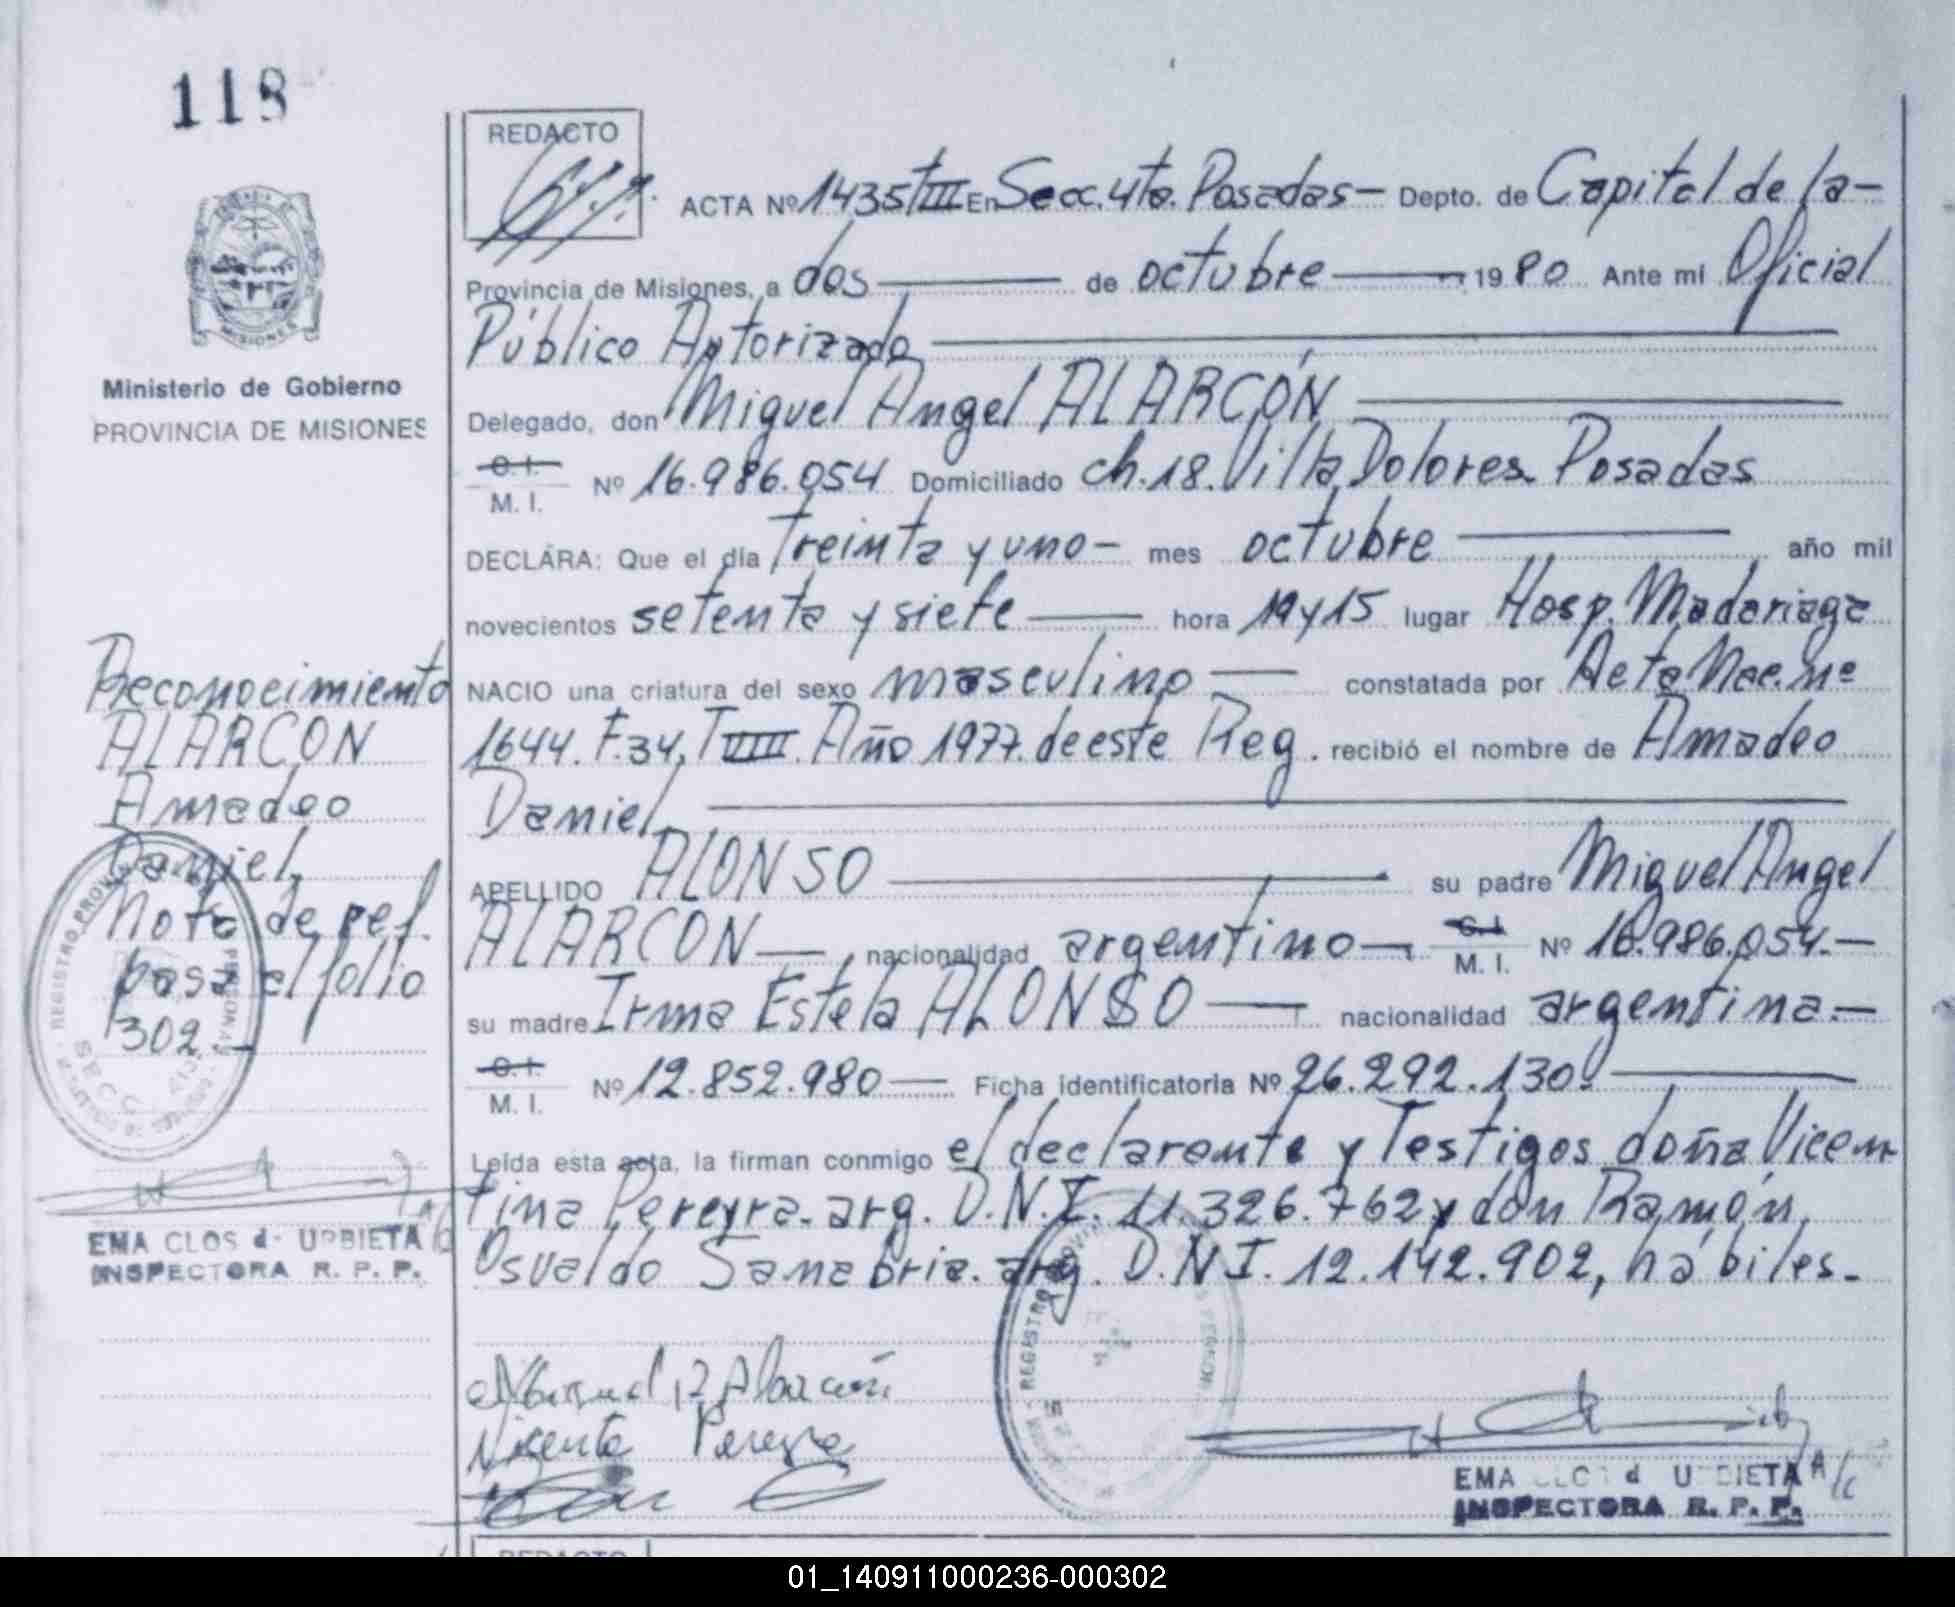 118
REDACTO
ACTA Nº 1435 TIII En Secc. 4ta. Posadas- Depto. de Capital de la-
Provincia de Misiones, a dos de octubre 1980 Ante mi Oficial
Público Autorizado
Ministerio de Gobierno
PROVINCIA DE MISIONES
Delegado, don Miguel Angel ALARCÓN
C.I.
M. I. Nº 16.986.054 Domiciliado ch.18. Villa Dolores. Posadas
DECLARA: Que el día treinta y uno- mes octubre año mil
novecientos setenta y siete hora 19 y 15 lugar Hosp. Madariaga
NACIO una criatura del sexo masculino constatada por Acta Nac. nº
1644. F.34. TVIII. Año 1977. de este Reg. recibió el nombre de Amadeo
Daniel
APELLIDO ALONSO su padre Miguel Angel
ALARCON nacionalidad argentino C.I. M. I. Nº 16.986.054.-
su madre Irma Estela ALONSO nacionalidad argentina.-
C.I.
M. I. Nº 12.852.980 Ficha identificatoria Nº 26.292.130.
Leída esta acta, la firman conmigo el declarante y Testigos doña Vicen
tina Pereyra. arg. D.N.I. 11.326.762 y don Ramón
Osvaldo Sanabria. arg. D.N.I. 12.142.902, hábiles.-
Reconocimiento
ALARCON
Amadeo
Daniel,
Nota de ref.
pasa al folio
302.-
REGISTRO PROV
SECC
EMA CLOS d. URBIETA
INSPECTORA R. P. P.
Alarcón
Vicenta Pereyra
REGISTRO
EMA CLOS d URBIETA A/c
INSPECTORA R. P. P.
REDACTO
01_140911000236-000302